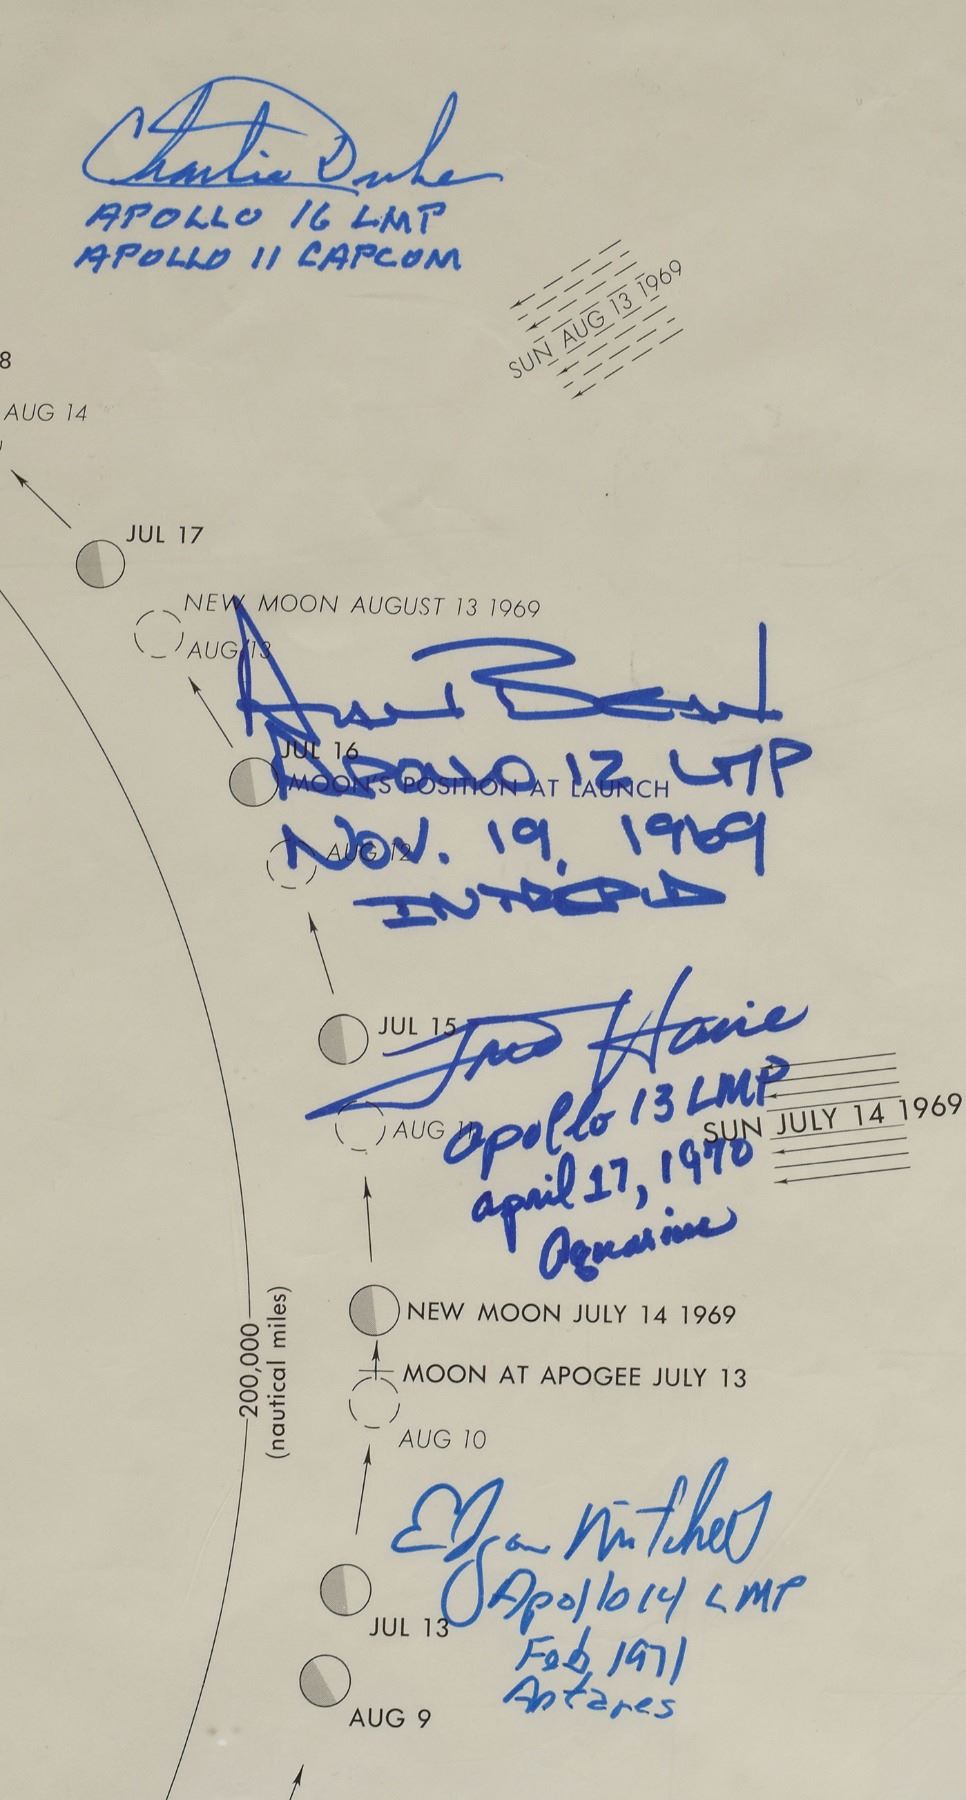 Charlie Duke
APOLLO 16 LMP
APOLLO 11 CAPCOM
SUN AUG 13 1969
8
AUG 14
JUL 17
NEW MOON AUGUST 13 1969
AUG 13
Alan Bean
JUL 16
APOLLO 12 LMP
MOON'S POSITION AT LAUNCH
NOV. 19, 1969
AUG 12
INTREPID
JUL 15
Fred Haise
Apollo 13 LMP
AUG 11
SUN JULY 14 1969
april 17, 1970
Aquarius
NEW MOON JULY 14 1969
200,000
(nautical miles)
MOON AT APOGEE JULY 13
AUG 10
Edgar Mitchell
Apollo 14 LMP
JUL 13
Feb 1971
Antares
AUG 9